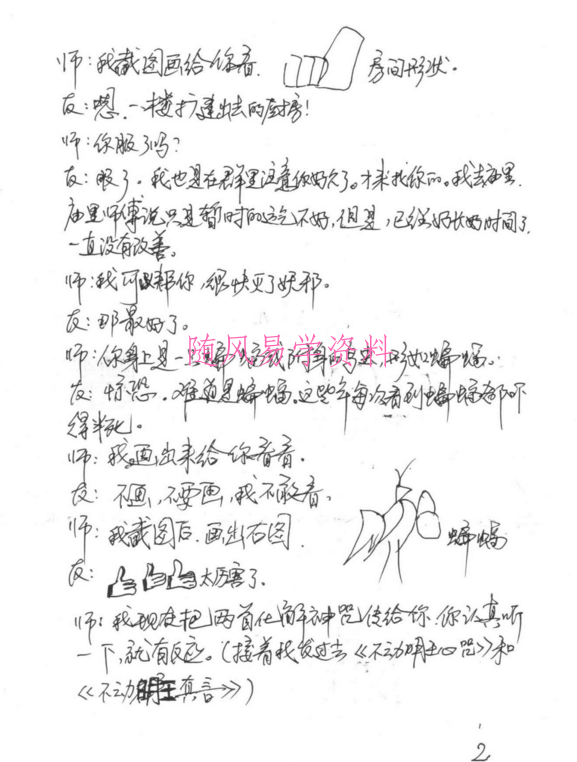 师:我截图画给你看. 房间形状。
友:嗯.一楼扩建出去的厨房!
师:你服了吗?
友:服了。我也是在群里注意你好久了。才来找你的。我去庙里.
庙里师傅说只是暂时的运气不好,但是,已经好长时间了.
一直没有改善。
师:我可以帮你,很快灭了妖邪。
友:那最好了。
随风易学资料
师:你身上是一只 形如蝙蝠。
友:惊恐。难道是蝙蝠。这些年每次看到蝙蝠都吓
得半死。
师:我画出来给你看看.
友:不画,不要画,我不敢看.
师:我截图后.画出右图. 蝙蝠
友: 太厉害了.
师:我现在把两首化解神咒传给你.你认真听
一下,就有反应。(接着我发过去《不动明王心咒》和
《不动明王真言》)
2